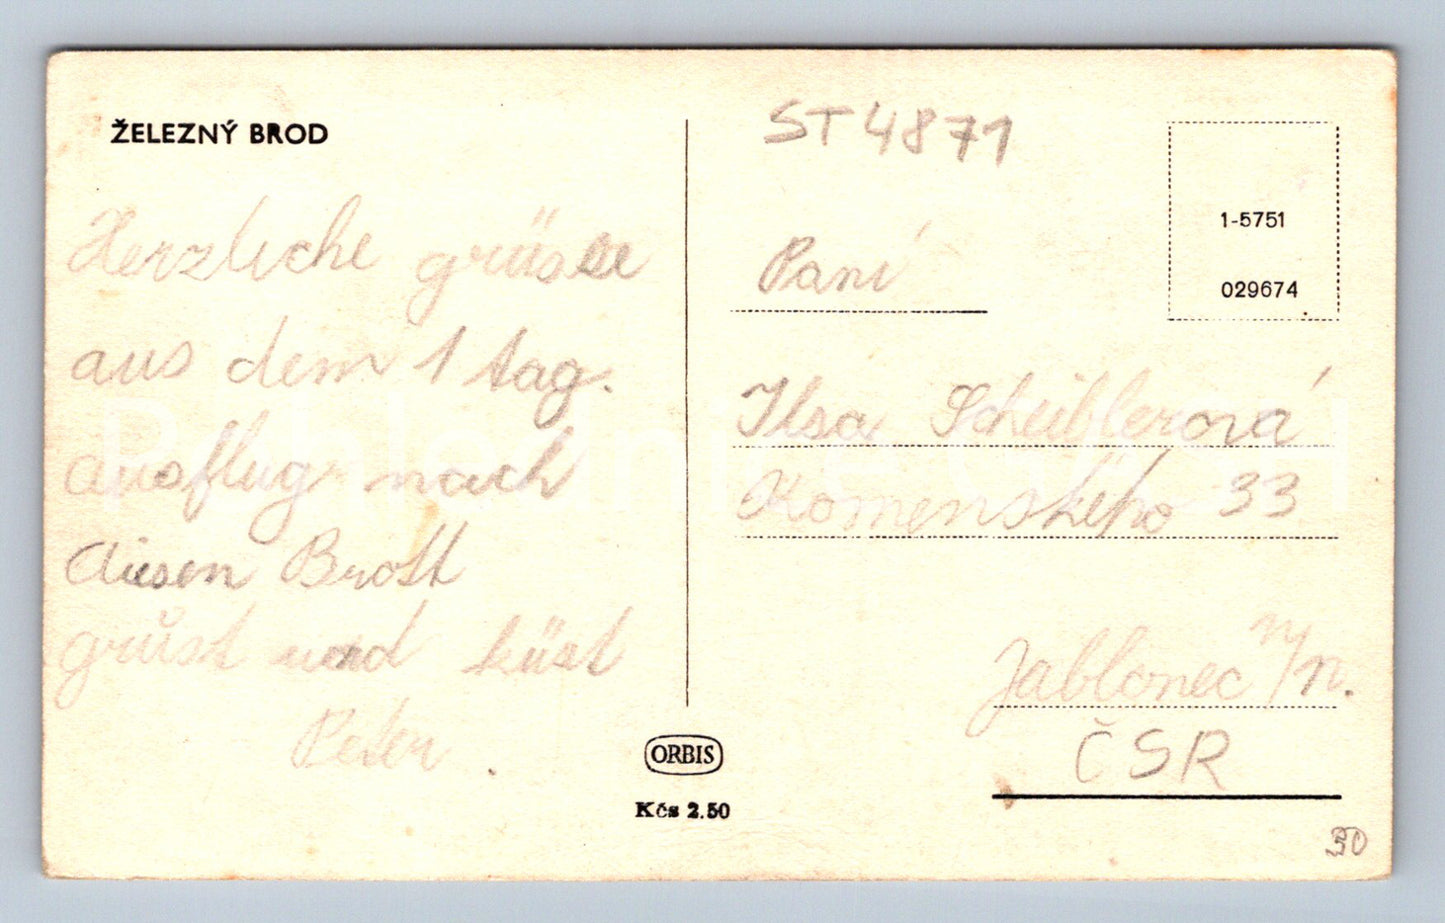 ŽELEZNÝ BROD
Herzliche grüsse
aus dem 1 tag.
ausflug nach
diesen Brott
grüst und küst
Peter.
ORBIS
Kčs 2.50
ST 4871
1-5751
029674
Paní
Ilsa Scheiblerová
Komenského 33
Jablonec n/n.
ČSR
30